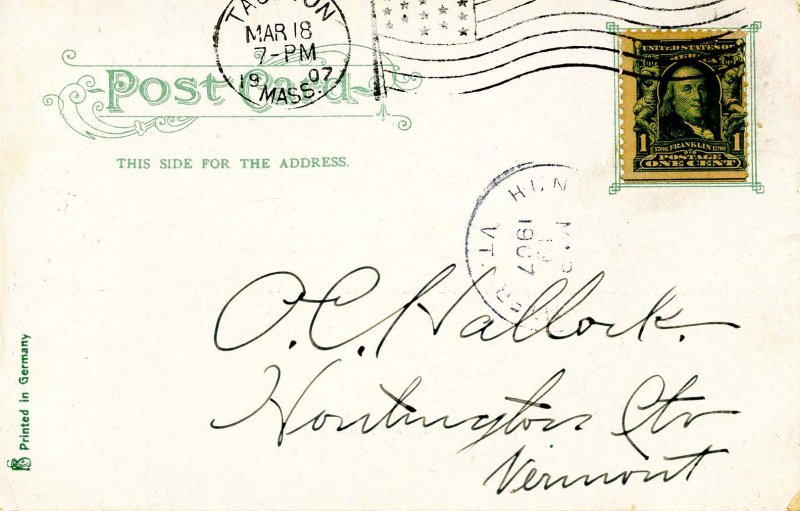 TAUNTON
MAR 18
7-PM
1907
MASS.
Post Card
THIS SIDE FOR THE ADDRESS.
UNITED STATES OF
1706 FRANKLIN 1790
1 POSTAGE 1
ONE CENT
HUN
VT.
1907
O. C. Hallock.
Huntington Ctr
Vermont
Printed in Germany